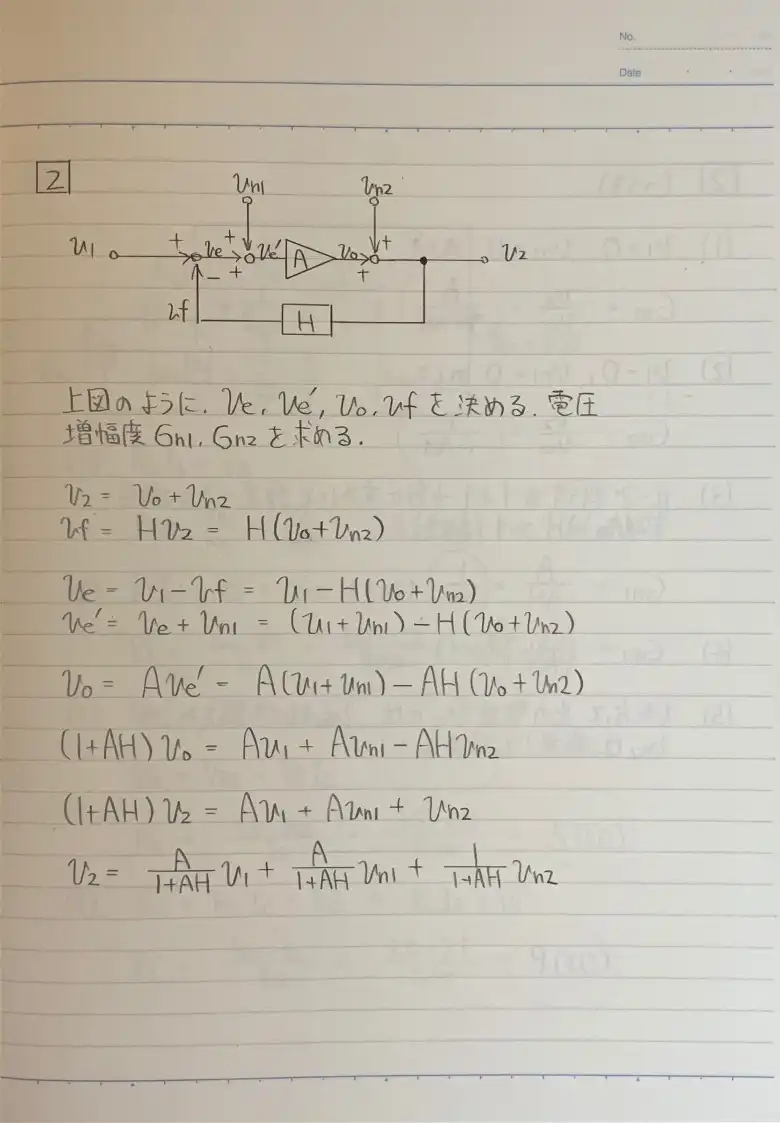 No.
Date
2
Vn1 Vn2
V1 + Ve + Ve' A Vo + V2
- + +
Vf H
上図のように、Ve, Ve', Vo, Vfを決める. 電圧
増幅度Gn1, Gn2を求める.
V2 = Vo + Vn2
Vf = HV2 = H(Vo+Vn2)
Ve = V1 - Vf = V1 - H(Vo+Vn2)
Ve' = Ve + Vn1 = (V1+Vn1) - H(Vo+Vn2)
Vo = AVe' = A(V1+Vn1) - AH(Vo+Vn2)
(1+AH)Vo = AV1 + AVn1 - AHVn2
(1+AH)V2 = AV1 + AVn1 + Vn2
V2 = A/(1+AH) V1 + A/(1+AH) Vn1 + 1/(1+AH) Vn2